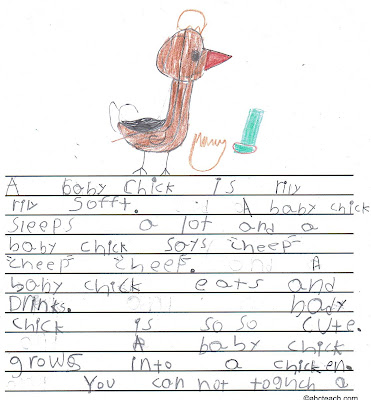 Mommy
A baby chick is rily
rily sofft. A baby chick
sleeps a lot and a
baby chick says "cheep"
"cheep" cheep. A
baby chick eats and
Drinks. bady
chick is so so cute.
A baby chick
grows into a chicken.
You can not toguch a
©abcteach.com